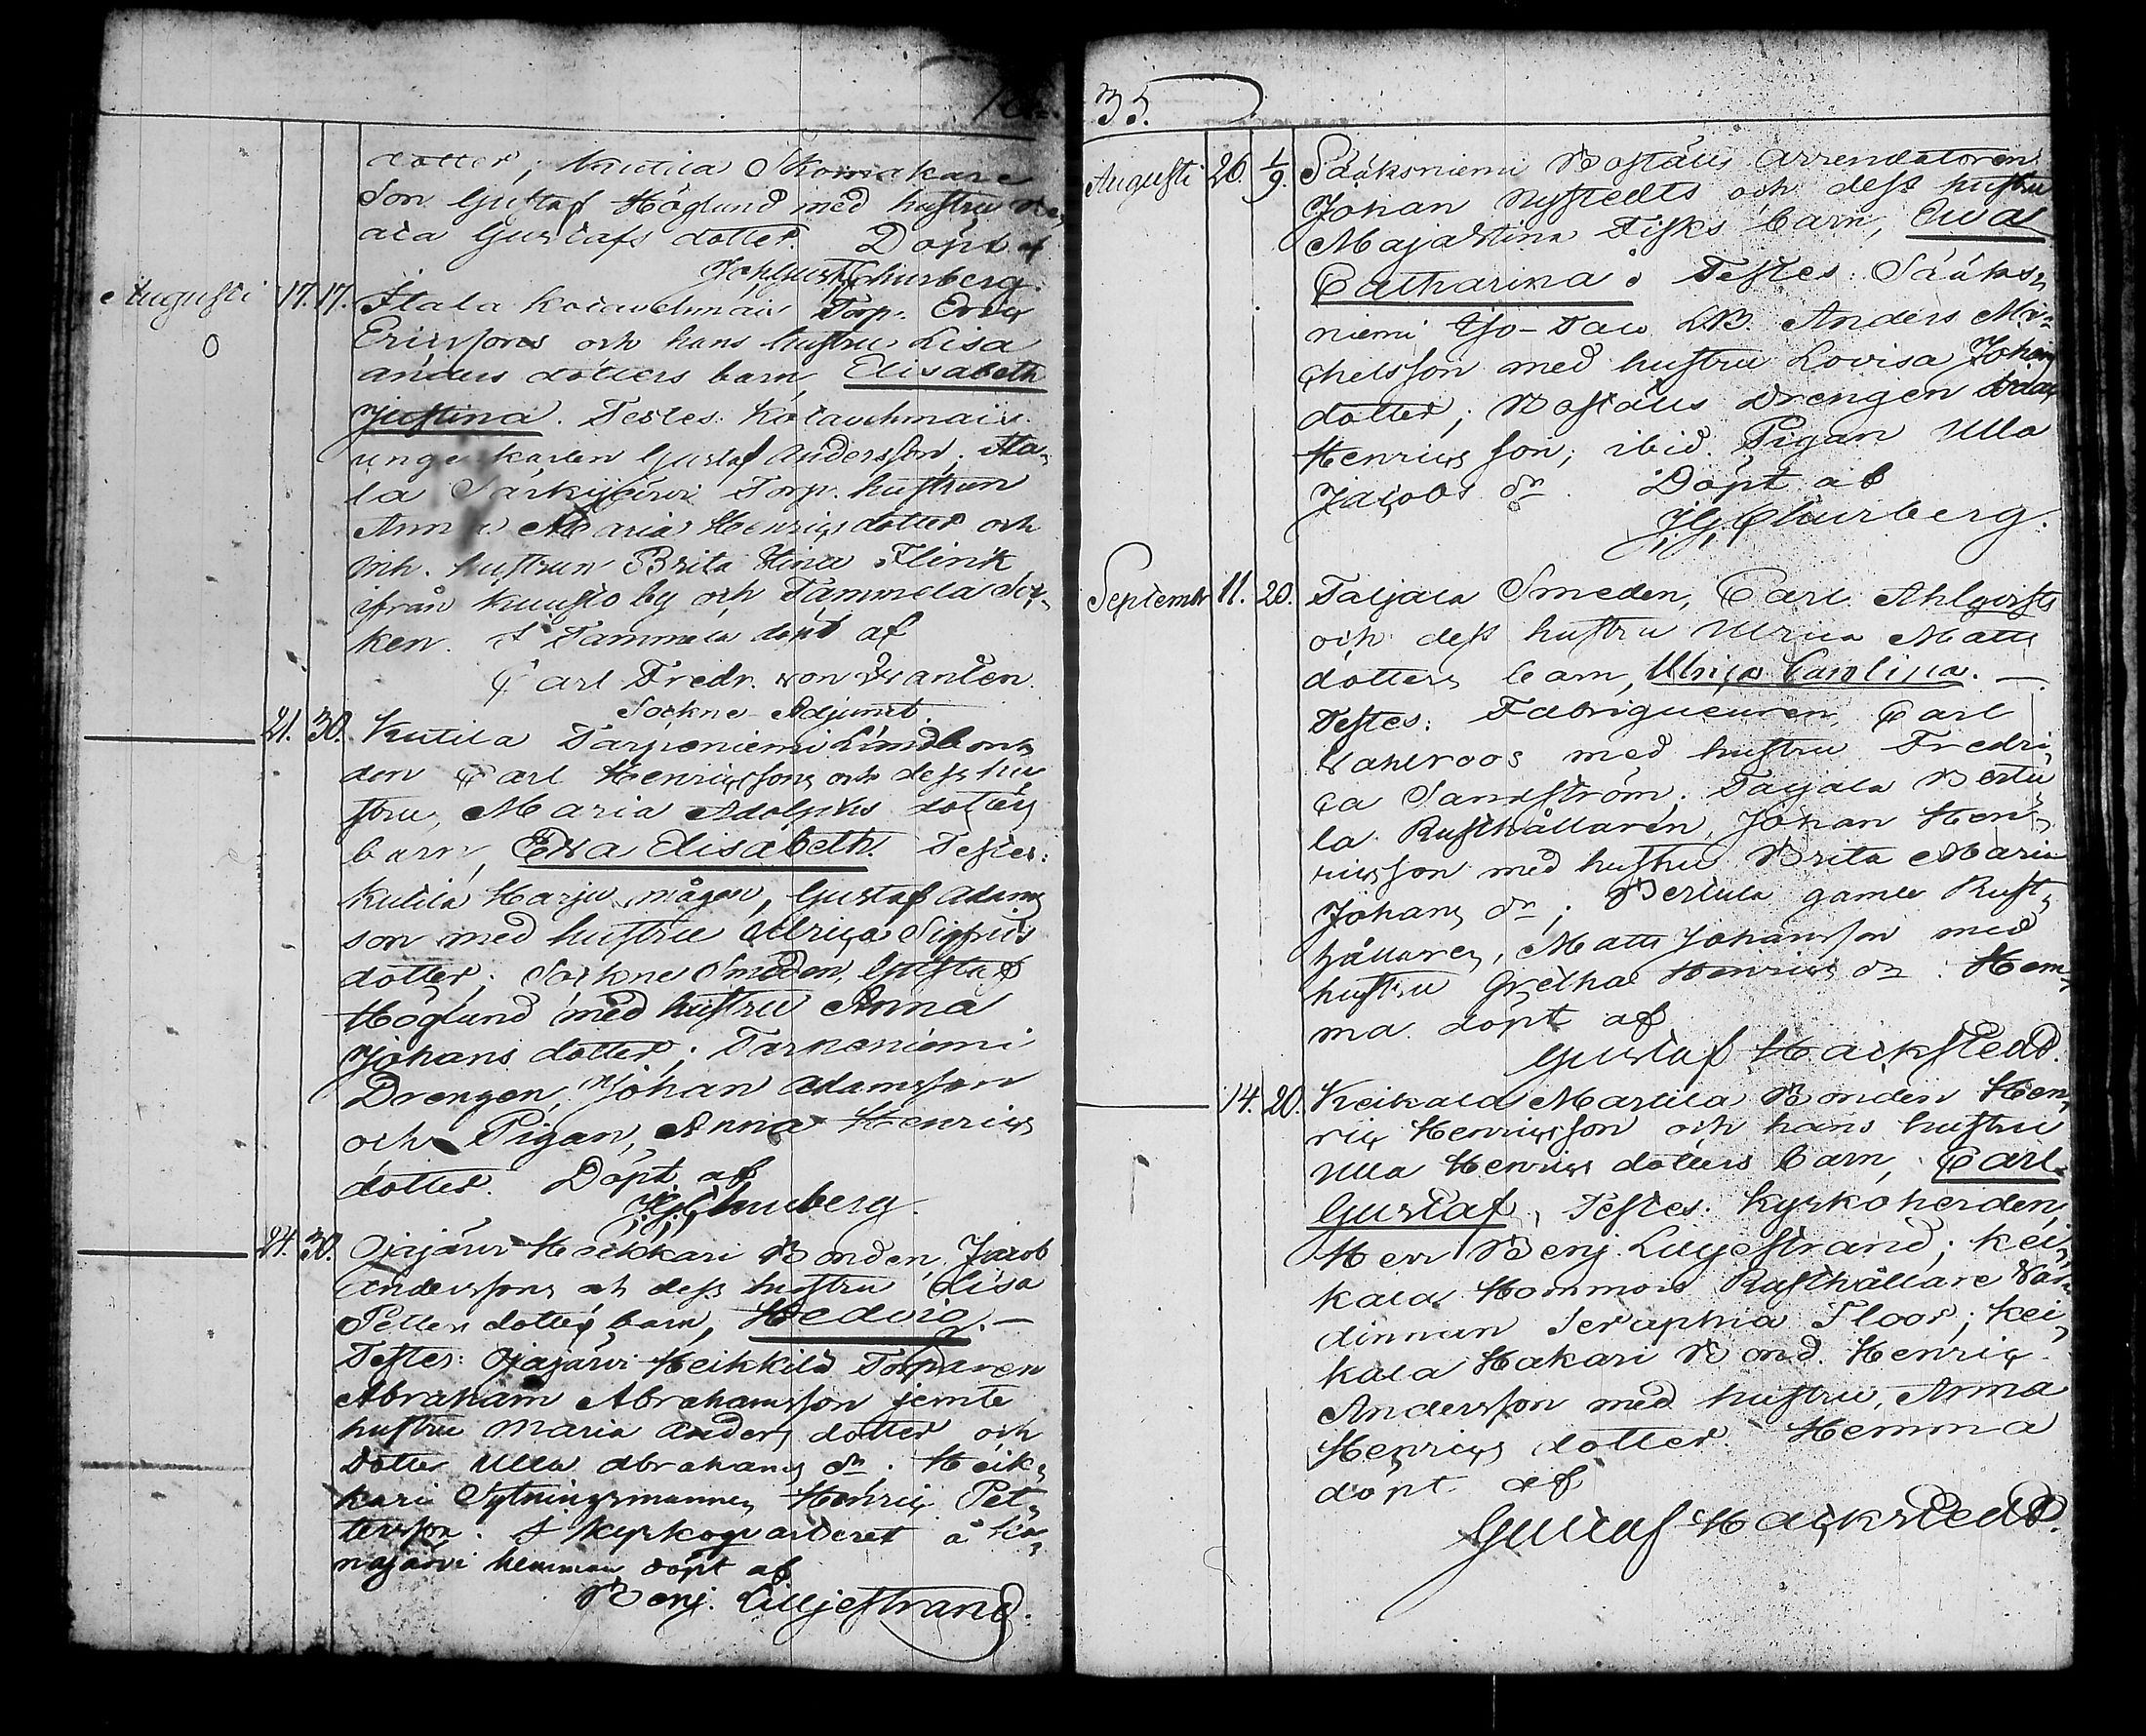 35.
dotter; Kutila Skomakare
Son Gustaf Höglund med hustru
Gustafs dotter. Döpt af
Joh. Gust. Churberg.
Augusti 17. 17. Itala Torp. Eric
Ericssons och hans hustru Lisa
Anders dotters barn, Elisabeth
Justina. Testes:
unge karlen Gustaf Andersson; Ita-
la Särkijärvi Torp. hustrun
Anna Maria Henrics dotter och
Inh. hustrun Brita Stina Flink
ifrån Kuusto by och Tammela Soc-
ken. I Tammela döpt af
Carl Fredr. von
Sockne Adjunct.
21. 30. Kutila Tarpeniemi Landbon-
den Carl Henricssons och dess hu-
stru, Maria Adolphs dotters
barn, Eva Elisabeth. Testes:
Kutila Harju mågen, Gustaf Adams
son med hustru Ulrica Sigfrids
dotter; Sockne Smeden, Gustaf
Höglund med hustru Anna
Johans dotter; Tarpeniemi
Drengen, Johan Adamsson
och Pigan, Anna Henrics
dotter. Döpt af
J. G. Churberg.
24. 30. Ojajärvi Heikkari Bonden, Jacob
Anderssons och dess hustru Lisa
Petters dotters barn, Hedvig. —
Testes: Ojajärvi Heikkilä Torparen
Abraham Abrahamsson jemte
hustru Maria Anders dotter och
Dotter Ulla Abrahams dr. Heik-
kari Sytningsmannen Henric Pet-
tersson. I Kyrkoqvarteret å
najärvi hemman döpt af
Benj. Lilljestrand.
Augusti 26. 1/9. Sääksniemi Boställs Arrendatoren
Johan Nystedts och dess hustru
Maja Stina Fisks barn, Eva
Catharina. Testes: Sääks-
niemi LB. Anders Mi-
chelsson med hustru Lovisa Johans
dotter; Boställs Drengen
Henrics son; ibid. Pigan Ulla
Jacobs dr. Döpt af
J. G. Churberg.
September 11. 20. Taljala Smeden, Carl Ahlqvists
och dess hustru Ulrica Matts
dotters barn, Ulrica Carolina. —
Testes: Fabriqueuren Carl
Vahlroos med hustru Fredri-
ca Sandström; Taljala Bertu-
la Rusthållaren, Johan Hen-
ricsson med hustru Brita Maria
Johans dr; Bertula gamle Rust-
hållaren, Matts Johansson med
hustru Gretha Henrics dr. Hem-
ma döpt af
Gustaf Hackstedt.
14. 20. Keikala Martila Bonden Hen-
ric Henricsson och hans hustru
Ulla Henrics dotters barn, Carl
Gustaf, Testes: Kyrkoherden,
Herr Benj. Lilljestrand; Kei-
kala Hommois Rusthållare Vär-
dinnan Seraphia Floor; Kei-
kala Hakari Bond. Henric
Andersson med hustru, Anna
Henrics dotter. Hemma
döpt af
Gustaf Hackstedt.